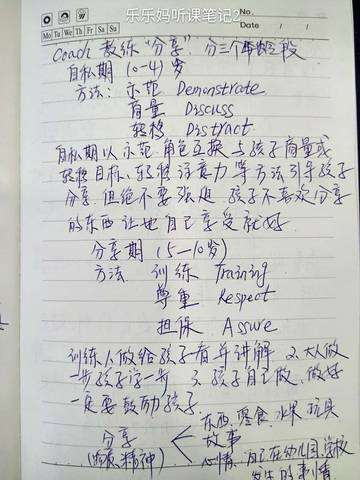 乐乐妈听课笔记2
Mo Tu We Th Fr Sa Su
Date / /
Coach 教练"分享" 分三个年龄段
自私期 (0-4) 岁
方法: 示范 Demonstrate
商量 Discuss
转移 Distract
自私期以示范、角色互换、与孩子商量或
转移目标、转移注意力等方法引导孩子
分享, 但绝不要强迫, 孩子不喜欢分享
的东西让他自己享受就好.
分享期 (5-10岁)
方法 训练 Training
尊重 Respect
担保 Assure
训练 1.做给孩子看并讲解 2.大人做
一步孩子学一步 3.孩子自己做, 做好
一定要鼓励孩子
东西. 零食. 水果 玩具
分享 故事
(物质.精神) 心情. 自己在幼儿园.学校
发生的事情